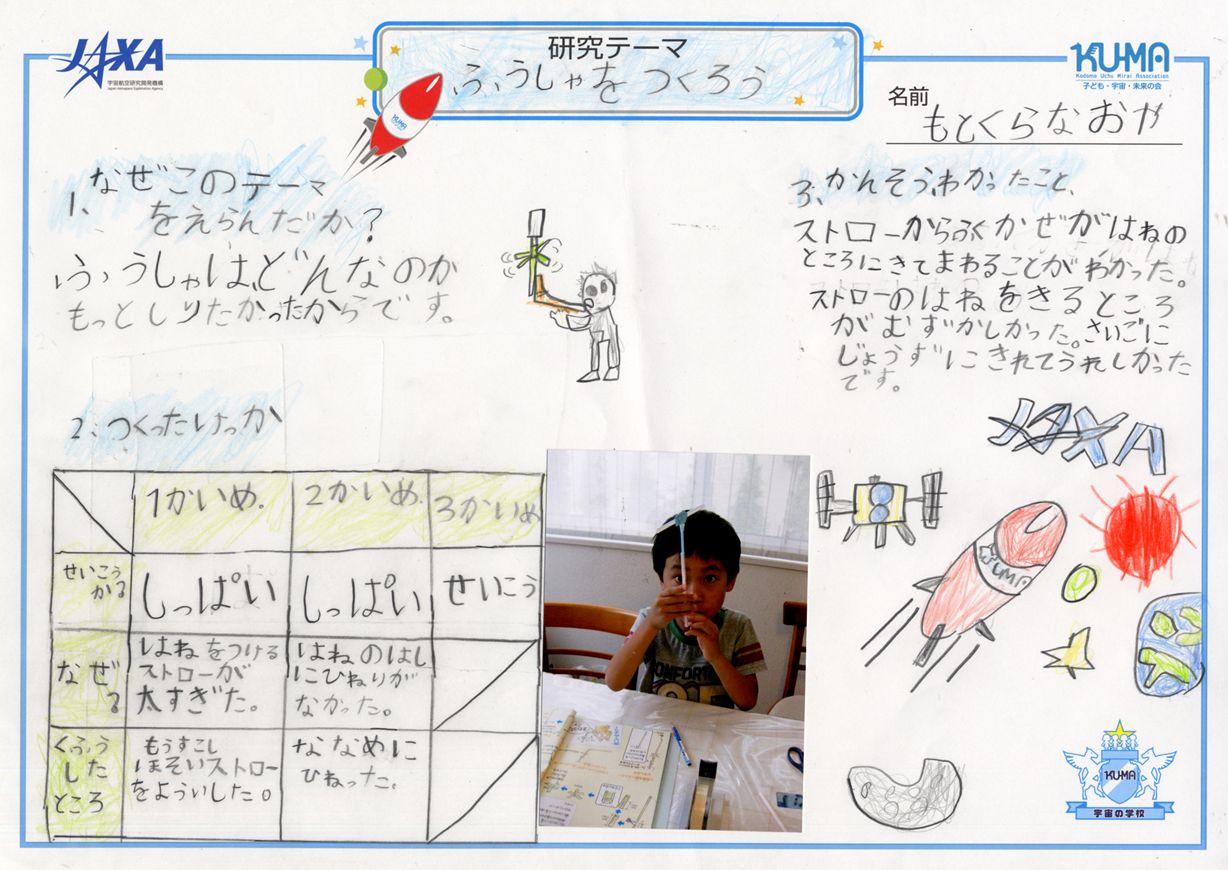 JAXA
宇宙航空研究開発機構
Japan Aerospace Exploration Agency
研究テーマ
ふうしゃをつくろう
KUMA
KUMA
Kodomo Uchu Mirai Association
子ども・宇宙・未来の会
名前 もとくらなおや
1、なぜこのテーマ
をえらんだか?
ふうしゃは、どんなのか
もっとしりたかったからです。
2、つくったけっか
1かいめ. 2かいめ. 3かいめ
せいこう
かる しっぱい しっぱい せいこう
なぜ
る
はねをつける
ストローが
太すぎた。
はねのはし
にひねりが
なかった。
くふう
した
ところ
もうすこし
ほそいストロー
をよういした。
ななめに
ひねった。
3、かんそう、わかったこと、
ストローからふくかぜがはねの
ところにきてまわることがわかった。
ストローのはねをきるところ
がむずかしかった。さいごに
じょうずにきれてうれしかった
です。
JAXA
KUMA
KUMA
宇宙の学校